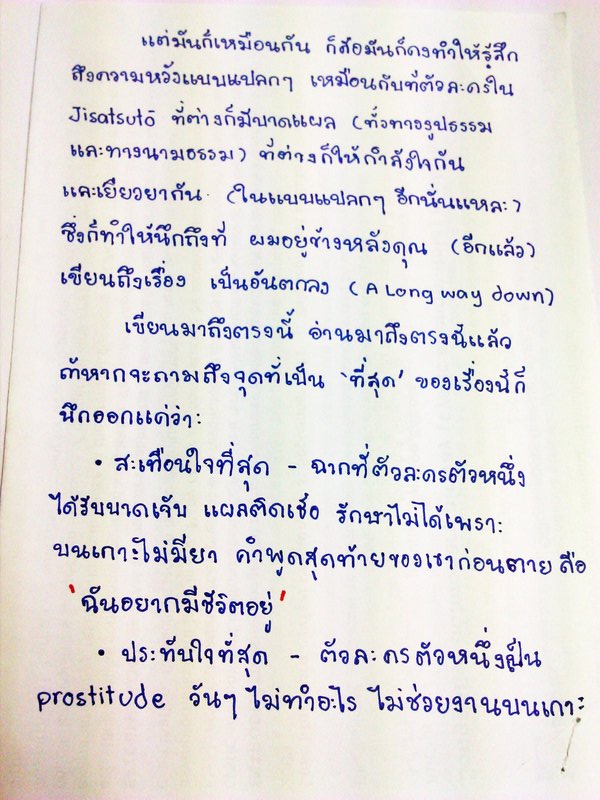 แต่มันก็เหมือนกัน ก็คือมันก็คงทำให้รู้สึก
ถึงความหวังแบบแปลกๆ เหมือนกับที่ตัวละครใน
Jisatsutō ที่ต่างก็มีบาดแผล (ทั้งทางรูปธรรม
และทางนามธรรม) ที่ต่างก็ให้กำลังใจกัน
และเยียวยากัน (ในแบบแปลกๆ อีกนั่นแหละ)
ซึ่งก็ทำให้นึกถึงที่ ผมอยู่ข้างหลังคุณ (อีกแล้ว)
เขียนถึงเรื่อง เป็นอันตกลง (A Long way down)
เขียนมาถึงตรงนี้ อ่านมาถึงตรงนี้แล้ว
ถ้าหากจะถามถึงจุดที่เป็น 'ที่สุด' ของเรื่องนี้ก็
นึกออกแค่ว่า:
• สะเทือนใจที่สุด - ฉากที่ตัวละครตัวหนึ่ง
ได้รับบาดเจ็บ แผลติดเชื้อ รักษาไม่ได้เพราะ
บนเกาะไม่มียา คำพูดสุดท้ายของเขาก่อนตาย คือ
'ฉันอยากมีชีวิตอยู่'
• ประทับใจที่สุด - ตัวละครตัวหนึ่งเป็น
prostitude วันๆ ไม่ทำอะไร ไม่ช่วยงานบนเกาะ